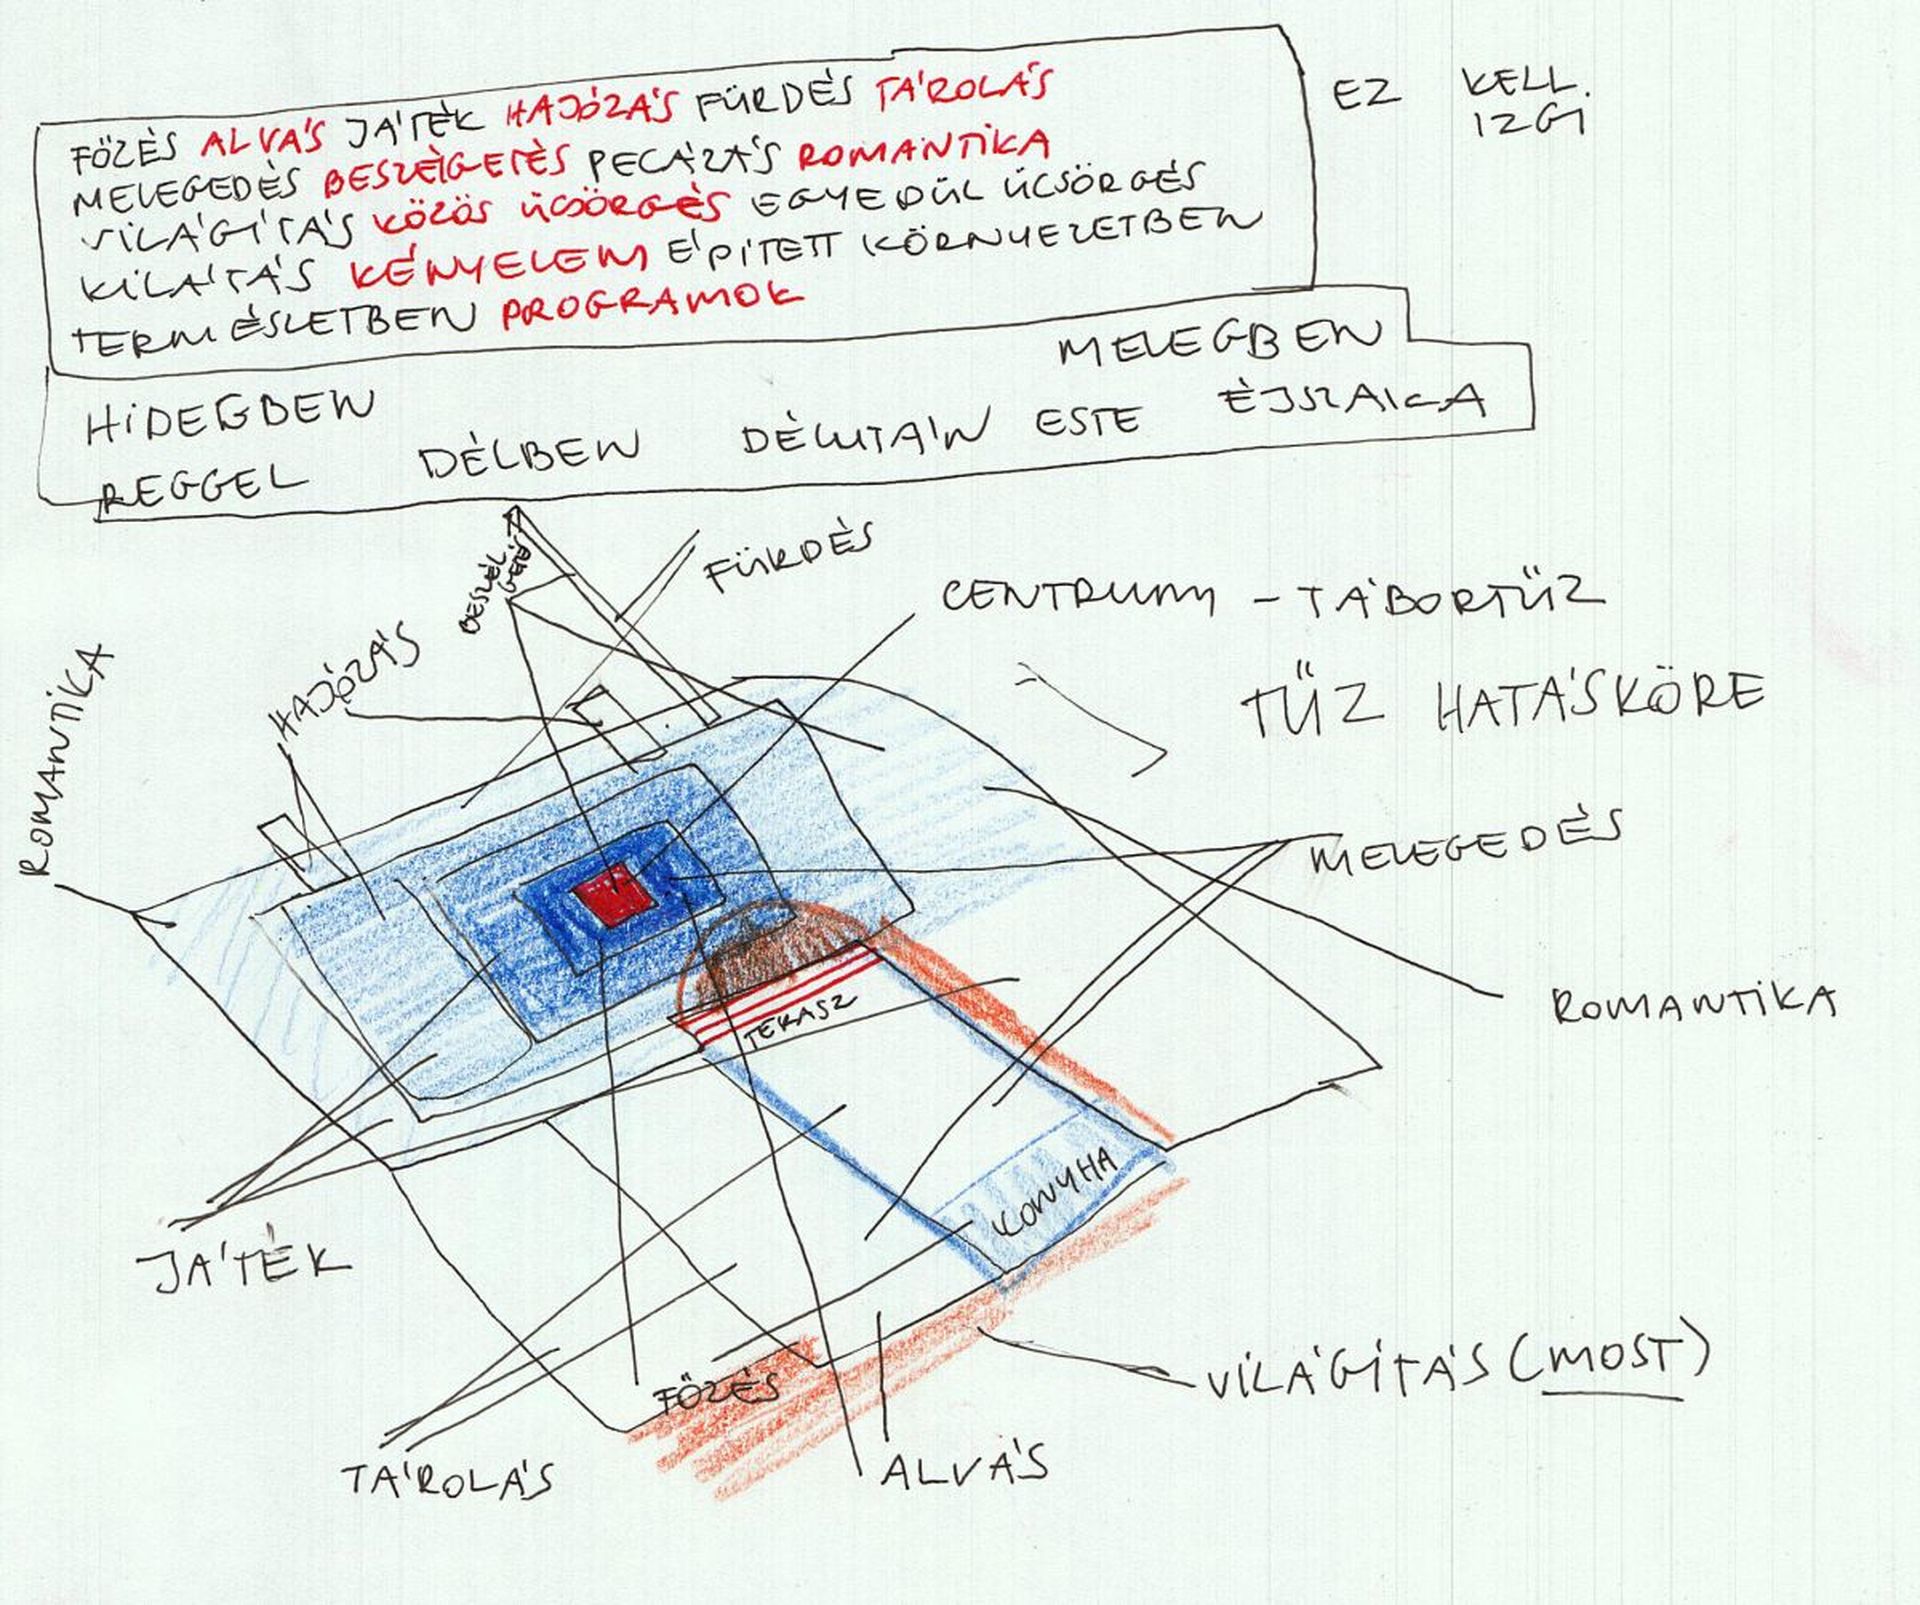 FŐZÉS ALVÁS JÁTÉK HAJÓZÁS FÜRDÉS TÁROLÁS
MELEGEDÉS BESZÉLGETÉS PECÁZÁS ROMANTIKA
VILÁGÍTÁS KÖZÖS ÜCSÖRGÉS EGYEDÜL ÜCSÖRGÉS
KILÁTÁS KÉNYELEM ÉPÍTETT KÖRNYEZETBEN
TERMÉSZETBEN PROGRAMOK
EZ KELL.
IZGI
MELEGBEN
HIDEGBEN
REGGEL DÉLBEN DÉLUTÁN ESTE ÉJSZAKA
BESZÉL
GETÉS
FÜRDÉS
CENTRUM - TÁBORTŰZ
HAJÓZÁS
ROMANTIKA
TŰZ HATÁSKÖRE
MELEGEDÉS
ROMANTIKA
TERASZ
KONYHA
JÁTÉK
FŐZÉS
VILÁGÍTÁS (MOST)
TÁROLÁS
ALVÁS